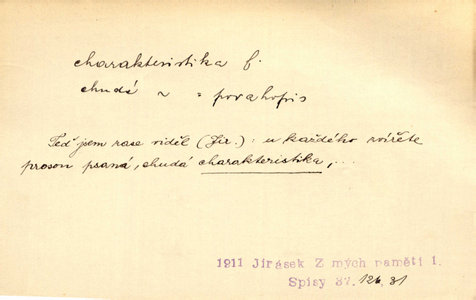 charakteristika f.
chudá ~ = povahopis
Teď jsem zase viděl (Jir.): u každého zvířete
prosou psaná, chudá charakteristika, ...
1911 Jirásek Z mých pamětí I.
Spisy 37. 126. 31